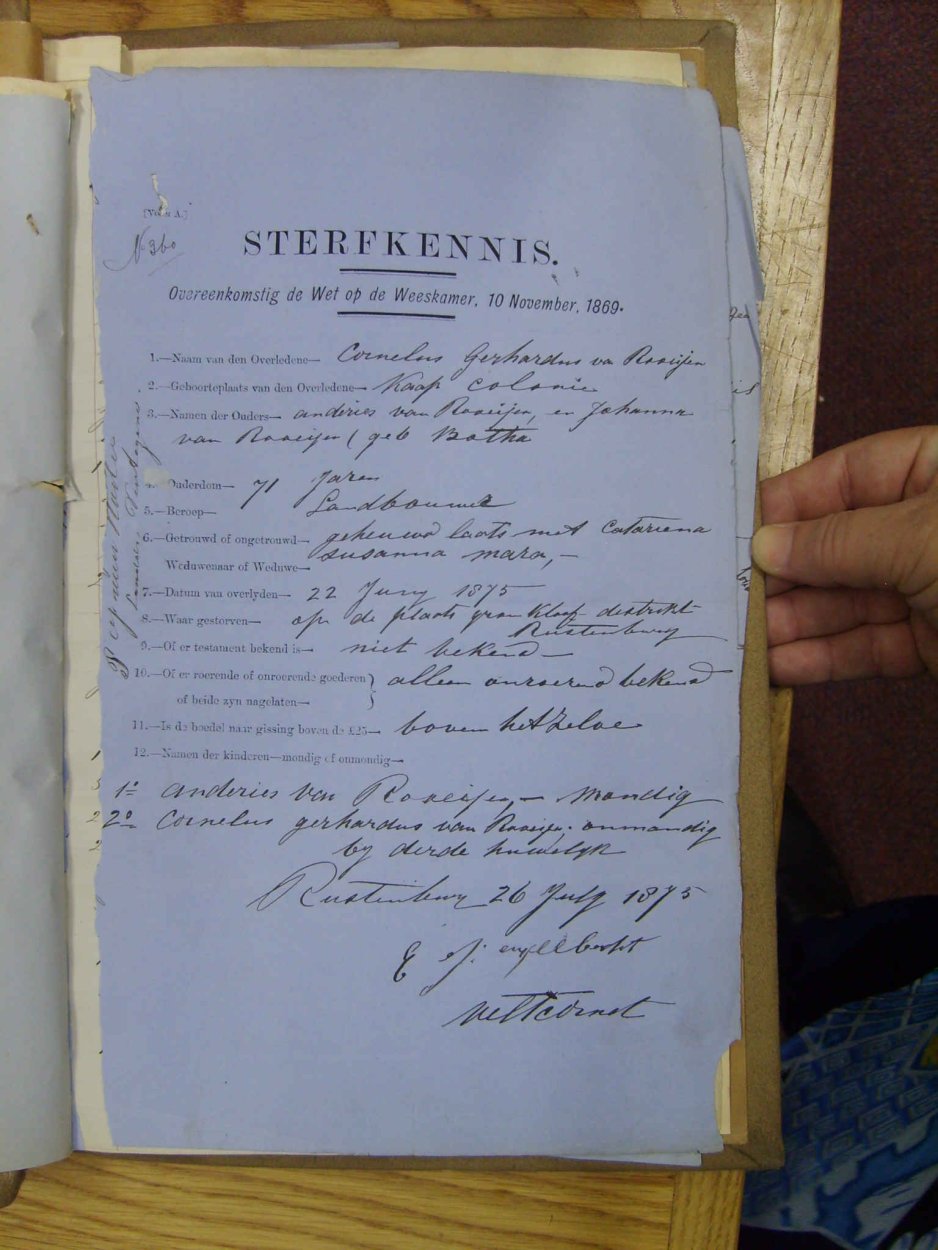 No 360
STERFKENNIS.
Overeenkomstig de Wet op de Weeskamer, 10 November, 1869.
1.—Naam van den Overledene— Cornelus Gerhardus van Rooeijen
2.—Geboorteplaats van den Overledene— Kaap colonie
3.—Namen der Ouders— anderies van Rooeijen, en Johanna
van Rooeijen ( geb Botha
4.—Ouderdom— 71 Jaren
5.—Beroep— Landbouwer
6.—Getrouwd of ongetrouwd— laats met Catariena
Weduwenaar of Weduwe— susanna mara,—
7.—Datum van overlyden— 22 Juny 1875
8.—Waar gestorven— op de plaats kloof destrikt
Rustenburg
9.—Of er testament bekend is— niet bekend—
10.—Of er roerende of onroerende goederen } alleen onroerend bekend
of beide zyn nagelaten—
11.—Is de boedel naar gissing boven de £25— boven hetzelve
12.—Namen der kinderen—mondig of onmondig—
1o anderies van Rooeijen,— mondig
2o Cornelus gerhardus van Rooeijen, onmondig
by derde huwelyk
Rustenburg 26 July 1875
E J: engelbrecht
veltcornet